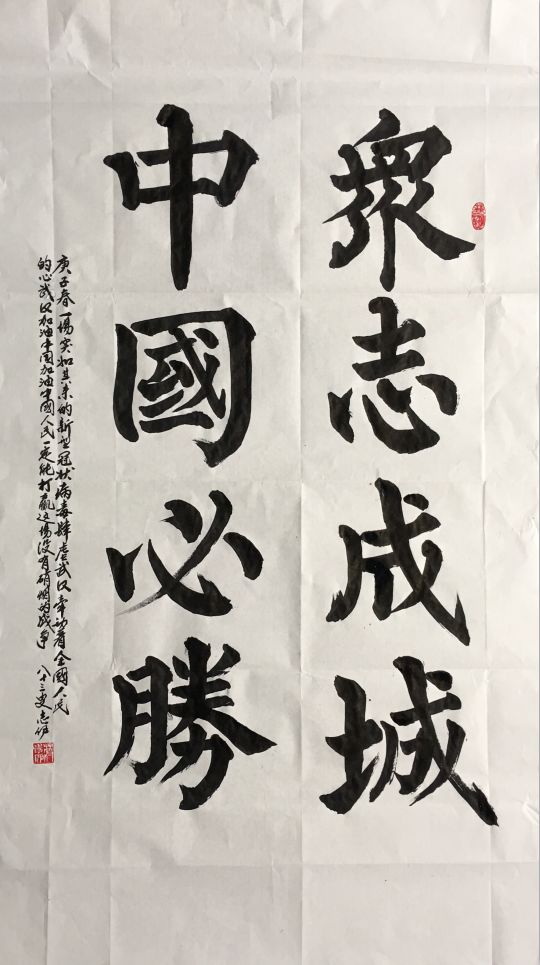 衆志成城
中國必勝
庚子春一場突如其来的新型冠状病毒肆虐武汉牽动着全國人民
的心武汉加油中国加油中國人民一定能打赢这場没有硝烟的战争 八十三叟志炉